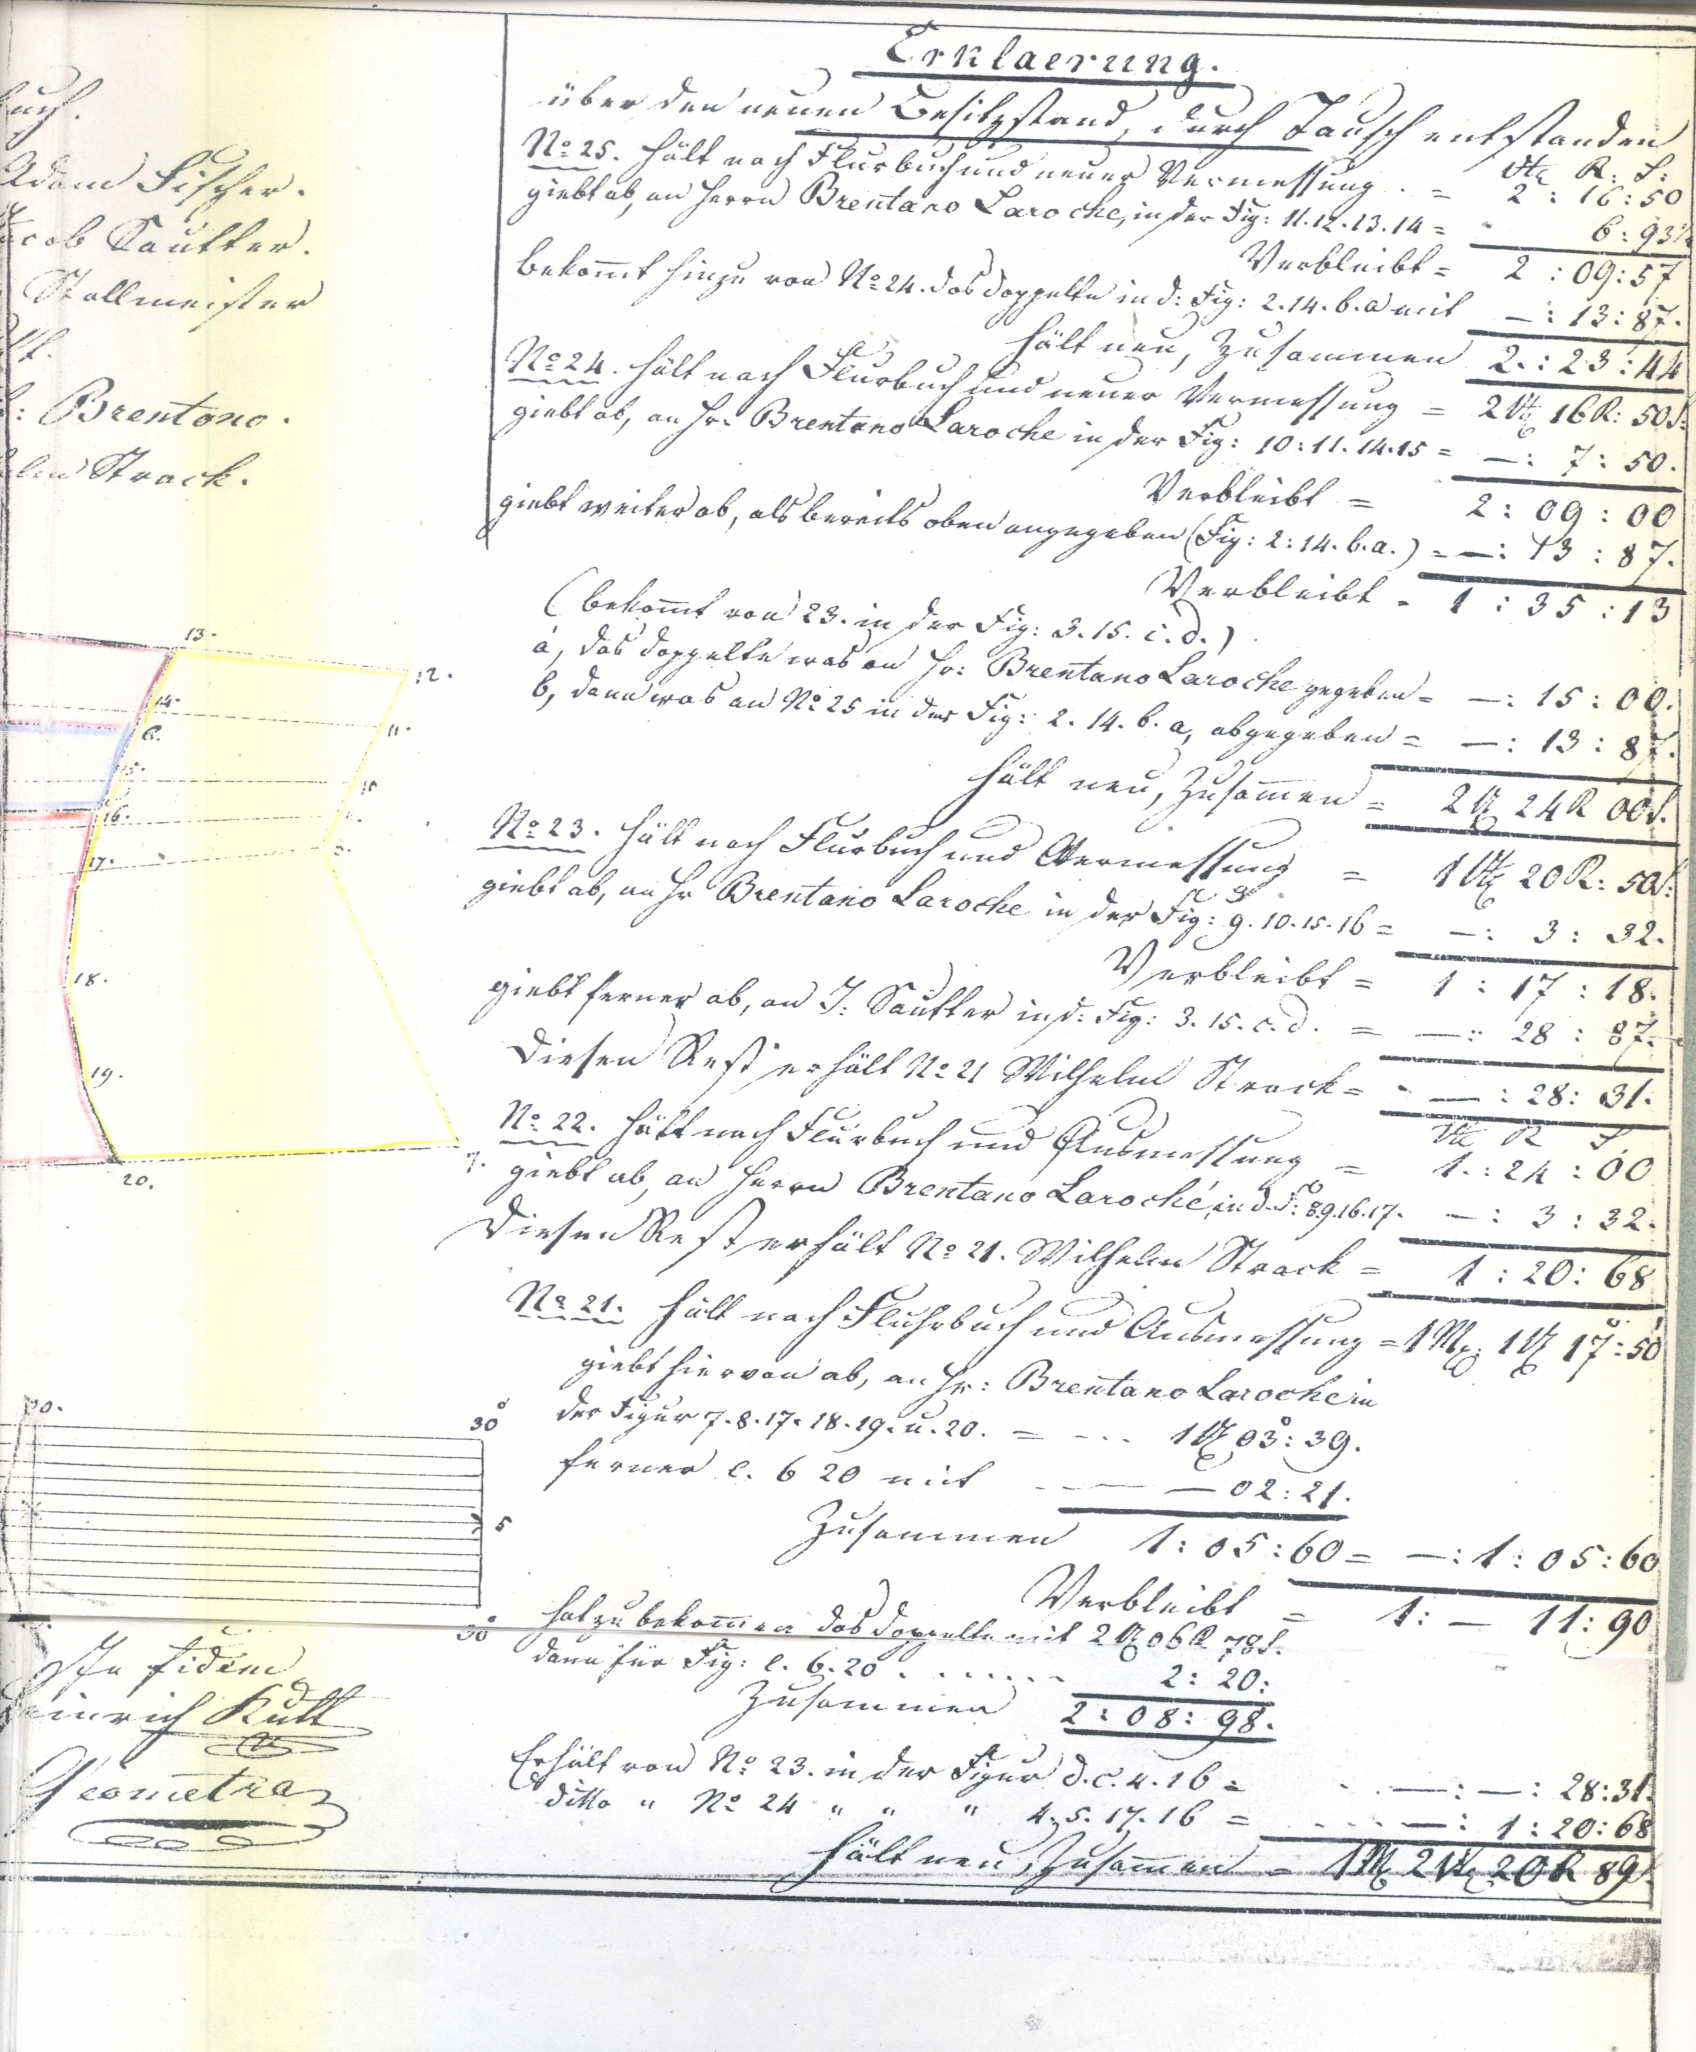 buch.
Adam Fischer.
Jacob Sautter.
Stallmeister
: Brentano.
Strack.
13.
12.
14.
11.
b.
15.
10.
16.
17.
18.
19.
20.
7.
20.
30°
5
30°
In fidem
Heinrich Kutt
Geometra
Erklaerung.
über den neuen Besitzstand, durch Tausch entstanden
Vtl. R: S:
No 25. hält nach Flurbuch und neuer Vermessung . = 2 : 16 : 50
giebt ab, an Herrn Brentano Laroche, in der Fig: 11.12.13.14 = 6 : 93½
Verbleibt = 2 : 09 : 57
bekommt hinzu von No 24. das doppelte in d: Fig: 2.14.b.a mit — : 13 : 87.
hält neu, Zusammen 2. : 23 : 44
No 24. hält nach Flurbuch und neuer Vermessung = 2 Vtl 16 R: 50 S:
giebt ab, an Hr: Brentano Laroche in der Fig: 10:11.14.15 = — : 7 : 50.
Verbleibt = 2 : 09 : 00
giebt weiter ab, als bereits oben angegeben (Fig: 2:14.b.a.) = — : 13 : 87.
Verbleibt = 1 : 35 : 13
(bekommt von 23. in der Fig: 3.15.c.d.)
a, das doppelte was an Hr: Brentano Laroche gegeben = — : 15 : 00.
b, dann was an No 25 in der Fig: 2.14.b.a, abgegeben = — : 13 : 87.
hält neu, Zusammen = 2 Vtl 24 R 00 S.
No 23. hält nach Flurbuch und Vermessung = 1 Vtl 20 R: 50 S:
giebt ab, an Hr Brentano Laroche in der Fig: 9.10.15.16 = — : 3 : 32.
Verbleibt = 1 : 17 : 18.
giebt ferner ab, an J: Sautter in d: Fig: 3.15.c.d. = — : 28 : 87.
Diesen Rest erhält No 21 Wilhelm Strack = — : 28 : 31.
Vtl R S
No 22. hält nach Flurbuch und Ausmessung = 1. : 24 : 00
giebt ab, an Herrn Brentano Laroche, in d. F: 8.9.16.17. — : 3 : 32.
Diesen Rest erhält No 21. Wilhelm Strack = 1 : 20 : 68
No 21. hält nach Fluhrbuch und Ausmessung = 1 Mg: 1 Vtl 17 : 50
giebt hiervon ab, an Hr: Brentano Laroche in
der Figur 7.8.17.18.19.u.20. = 1 Vtl 03 : 39.
ferner e. 6 20 mit — 02 : 21.
Zusammen 1 : 05 : 60 = — : 1 : 05 : 60
Verbleibt = 1 : — 11 : 90
hat zu bekommen das doppelte mit 2 Vtl 06 R 78 S.
dann für Fig: e. 6. 20 . . . . . . . 2 : 20 :
Zusammen 2 : 08 : 98.
Erhält von No 23. in der Figur d.c.4.16 = — : — : 28 : 31.
ditto " No 24 " " " 4.5.17.16 = — : 1 : 20 : 68
hält neu, Zusammen = 1 Mg 2 Vtl 20 R 89 S.